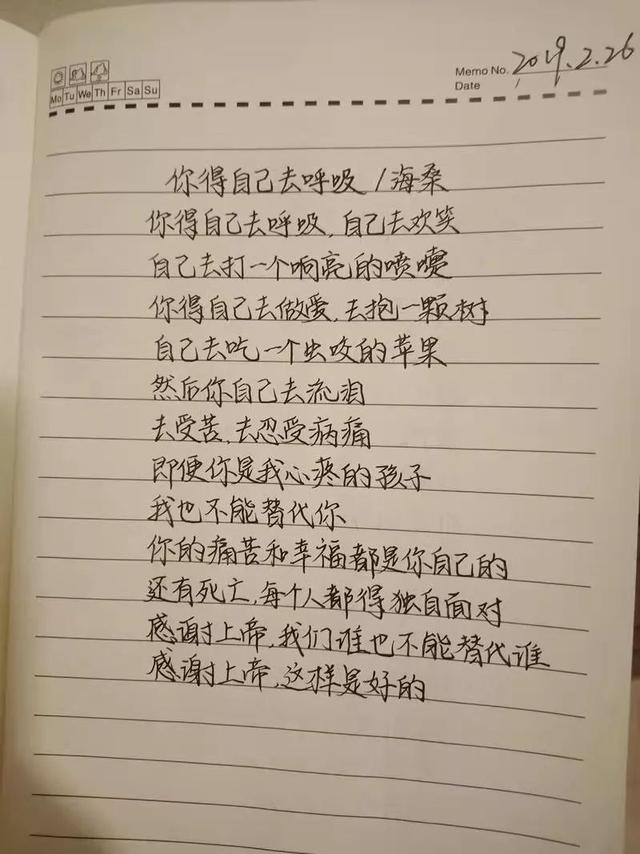 Memo No. 2019.2.26
Mo Tu We Th Fr Sa Su
Date
你得自己去呼吸/海桑
你得自己去呼吸,自己去欢笑
自己去打一个响亮的喷嚏
你得自己去做爱,去抱一颗树
自己去吃一个虫咬的苹果
然后你自己去流泪
去受苦,去忍受病痛
即便你是我心疼的孩子
我也不能替代你
你的痛苦和幸福都是你自己的
还有死亡,每个人都得独自面对
感谢上帝,我们谁也不能替代谁
感谢上帝,这样是好的